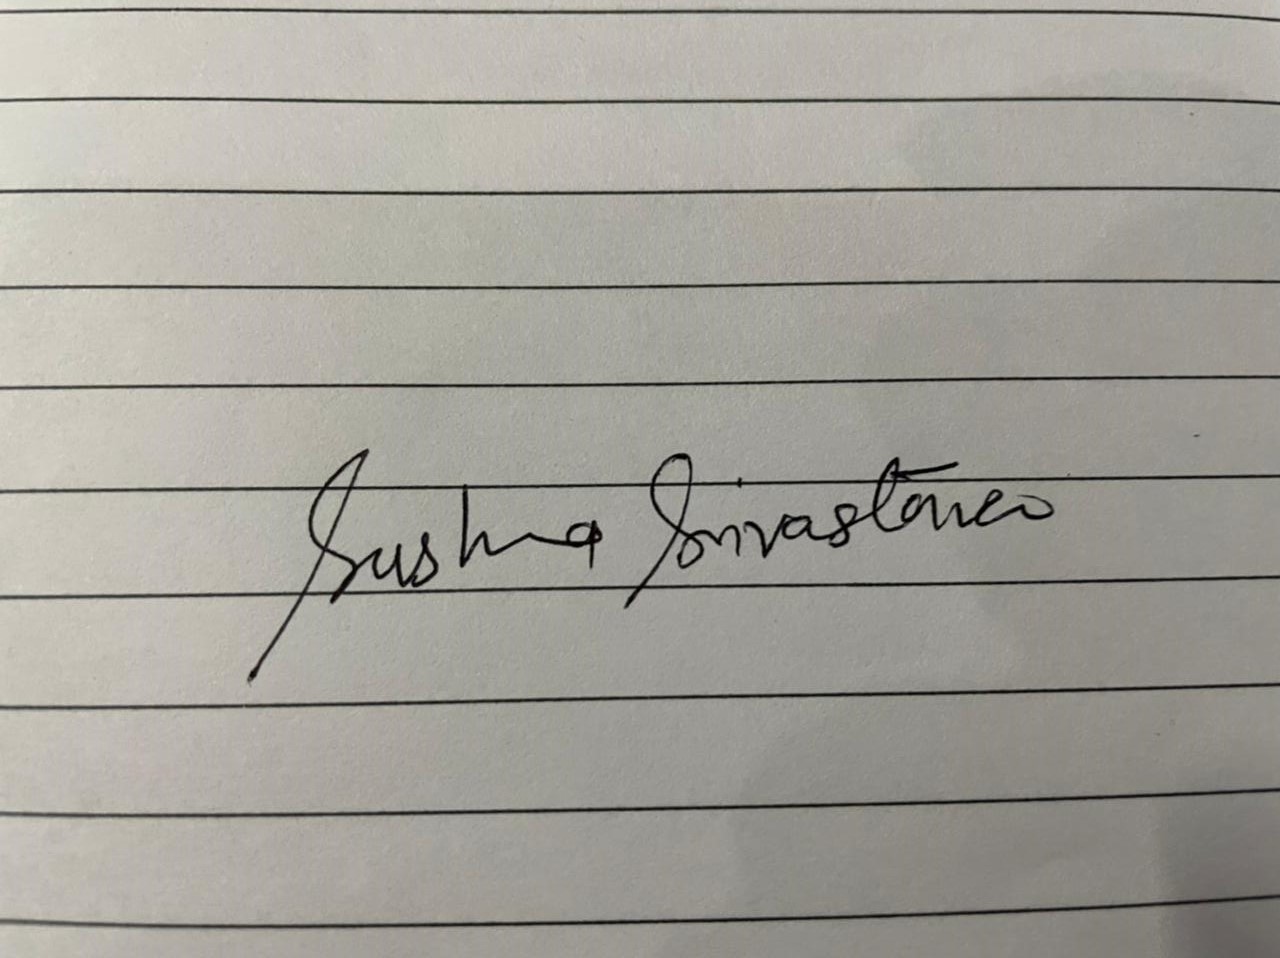 Sushma Srivastava